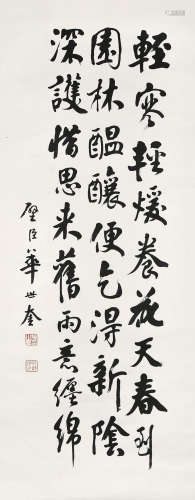 輕寒輕煖養花天春到
園林醞釀便乞得新陰
深護惜思来舊雨意纏綿
璧臣華世奎